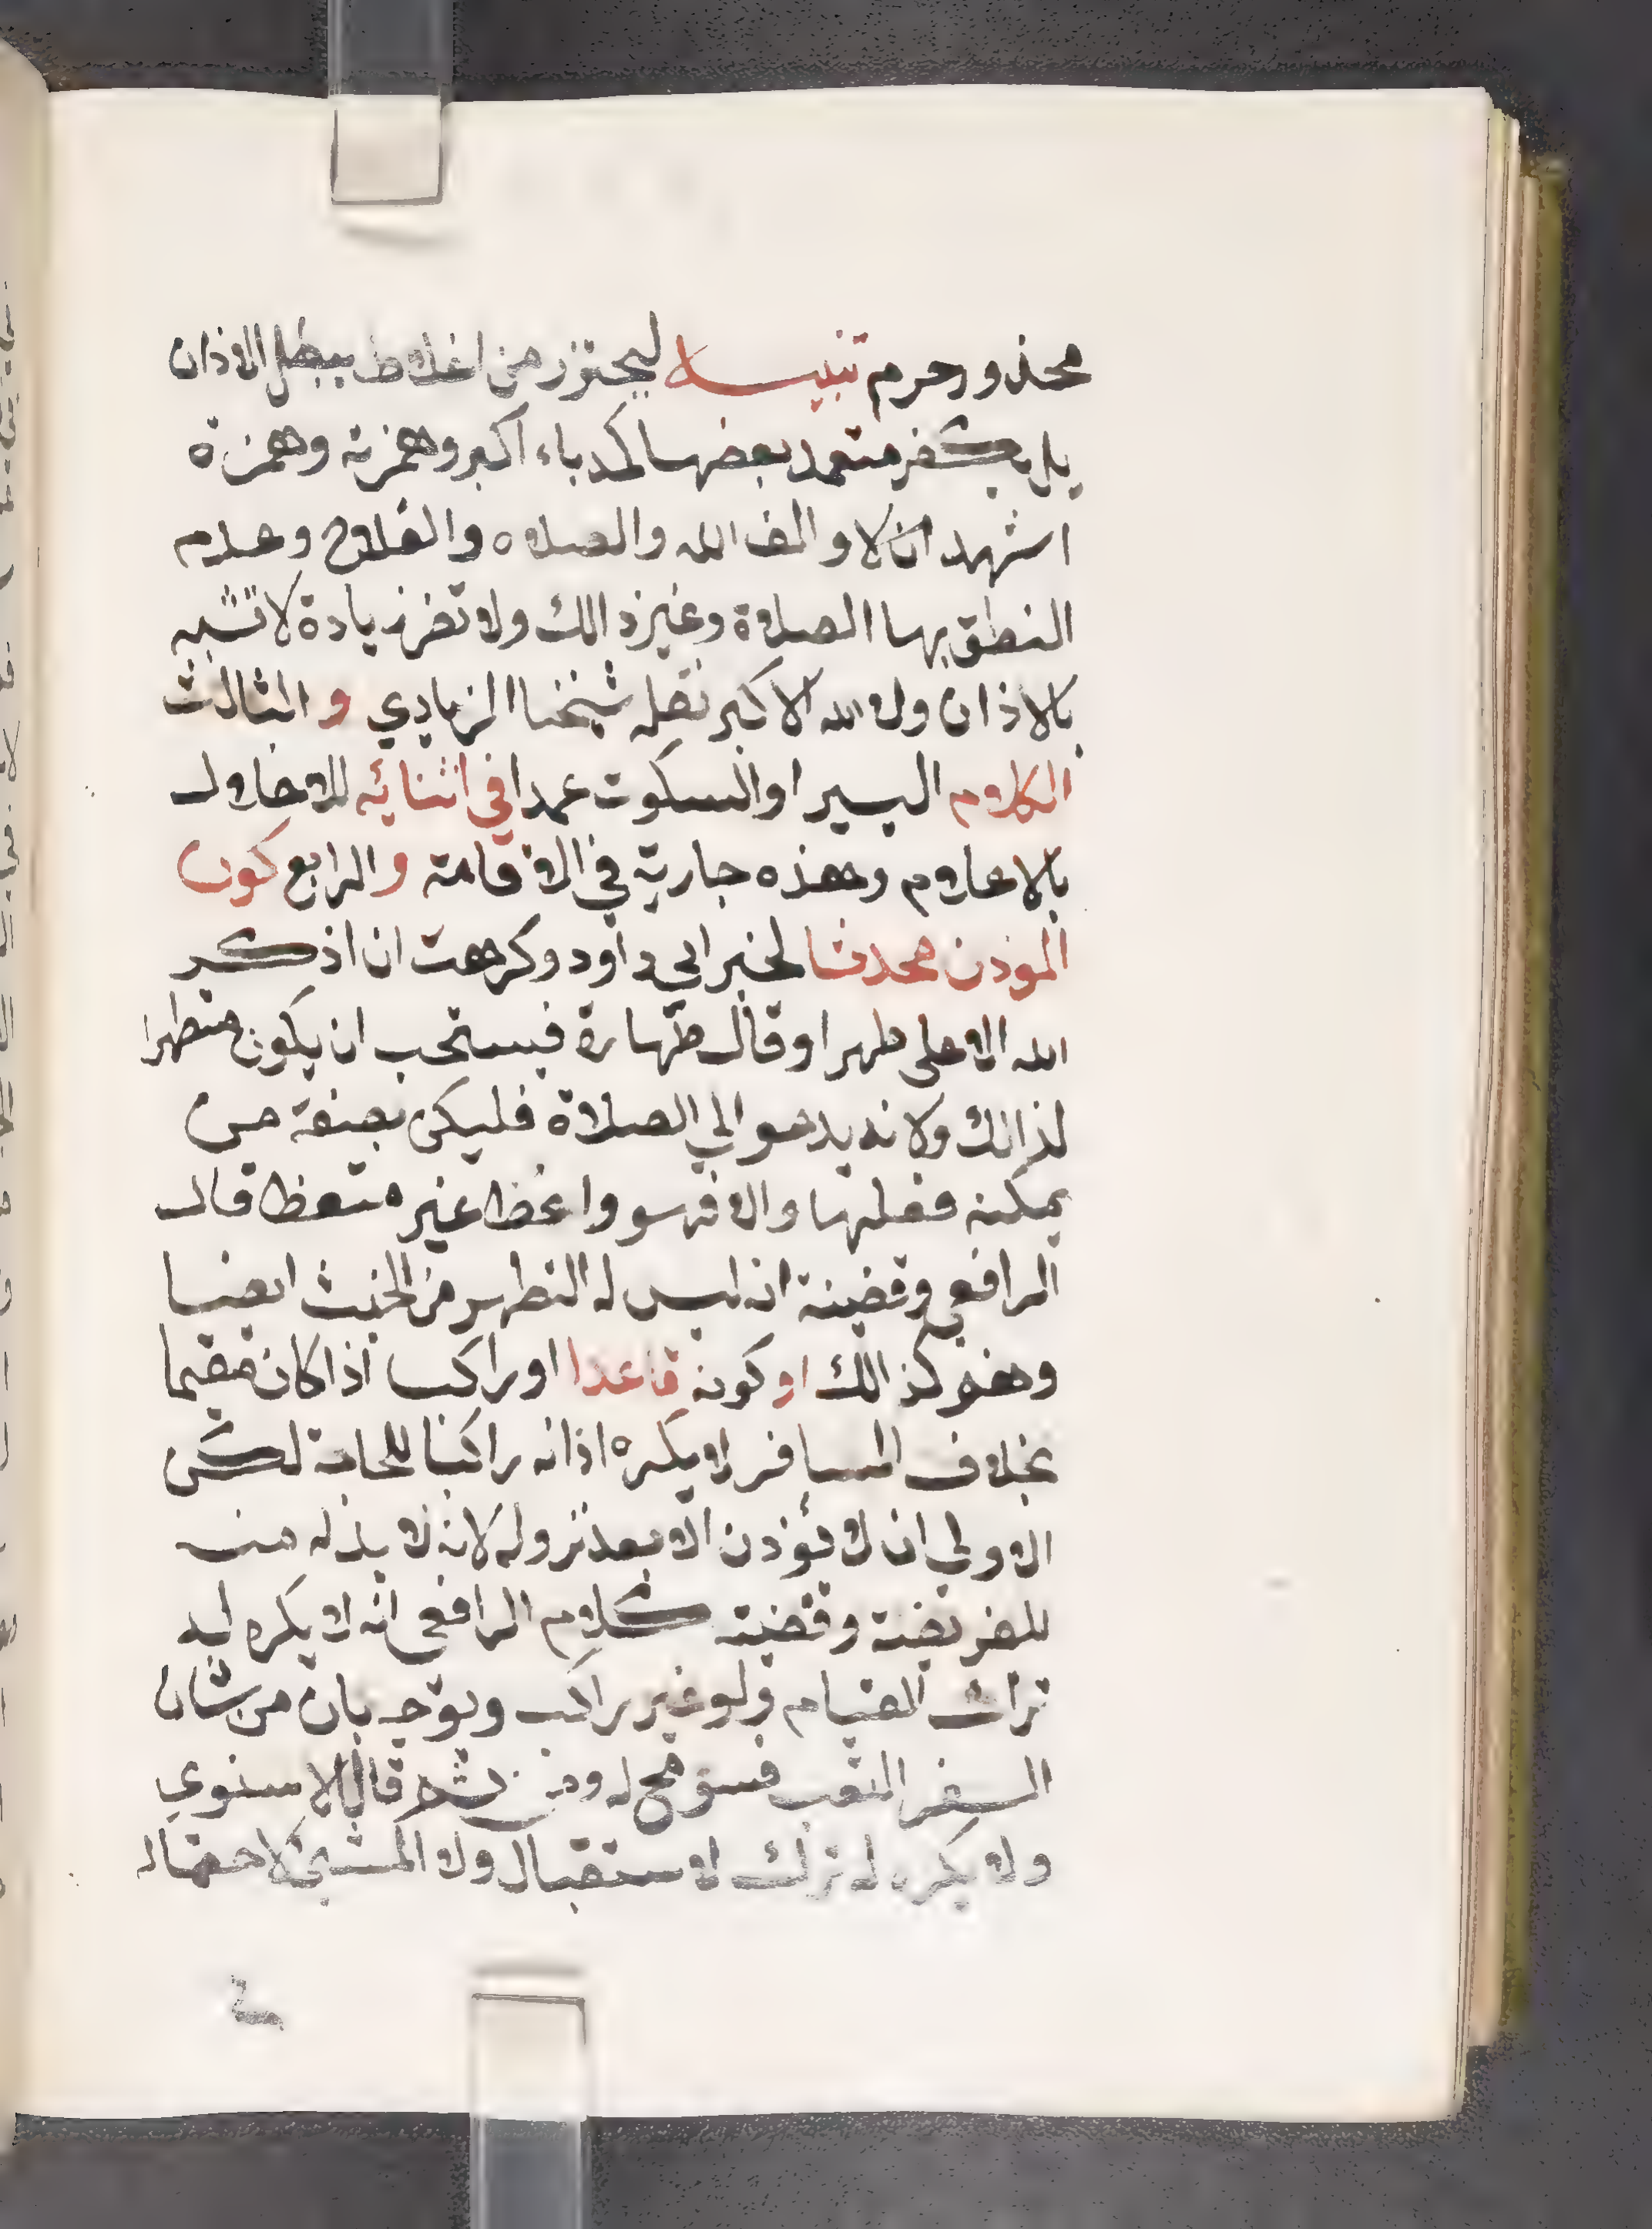 محذور حرم تنبيه ليحترز من اغلاط يبطل الاذان
بل يكفر متعمد بعضها كمد باء اكبر وهمزته وهمزة
اشهد ان لا والف الله والصلاه والفلاح وعدم
النطق بها الصلاة وغير ذالك ولا تضر زيادة لا تشبه
بالاذان ولا الله الاكبر نقله شيخنا الزيادي و الثالث
الكلام اليسير او السكوت عمدا في اثنائه للاخلال
بالاعلام وهذه جارية في الاقامة و الرابع كون
المؤذن محدثا لخبر ابي داود وكرهت ان اذكر
الله الا على طهر او قال طهارة فيستحب ان يكون متطهرا
لذالك ولانه يدعو الي الصلاة فليكن بصفة من
يمكنه فعلها والا فهو واعظ غير متعظ قال
الرافعي وقضيته انه ليس له التطهر من الخبث ايضا
وهو كذالك او كونه قاعدا او راكبا اذا كان مقيما
بخلاف المسافر لا يكره اذانه راكبا للحاجة لكن
الاولي ان لا يؤذن الا بعد نزوله لانه لا بد له منه
للفريضة وقضية كلام الرافعي انه لا يكره له
ترك القيام ولو غير راكب ويوجه بان من شان
السفر التعب فسومح له ومن ثم قال الاسنوي
ولا يكره له ترك الاستقبال ولا المشي لاحتماله